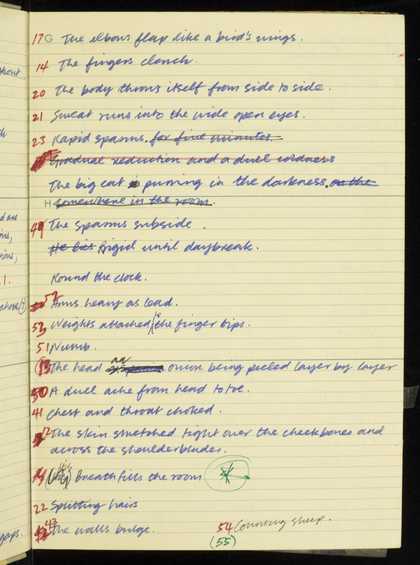 17G The elbows flap like a bird's wings.
14 The fingers clench.
20 The body throws itself from side to side.
21 Sweat runs into the wide open eyes.
23 Rapid spasms for five minutes
Gradual reduction and a duel
The big cat purring in the darkness on the
H somewhere in the room.
The spasms subside.
He lies Rigid until daybreak.
Round the clock.
52 Arms heavy as lead.
53 Weights attached the finger tips.
51 Numb.
The head an onion being peeled layer by layer
50 A duel ache from head to toe.
41 Chest and throat choked.
The skin stretched tight over the cheekbones and
across the shoulderblades.
breath fills the room
22 Splitting hairs
The walls bulge.
54 Counting sheep.
(55)